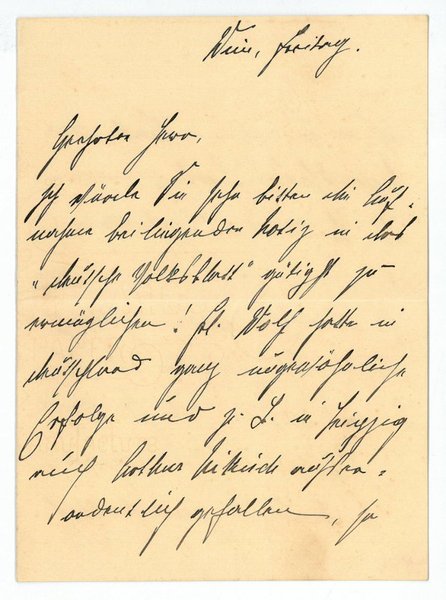 Wien, Freitag.
Geehrter Herr,
Ich würde Sie sehr bitten die Auf-
nahme beiliegender Notiz in das
"deutsche Volksblatt" gütigst zu
ermöglichen! Frl. Wolf hatte in
Deutschland ganz ungewöhnliche
Erfolge und z. B. in Leipzig
auch Arthur Nikisch außer-
ordentlich gefallen, so